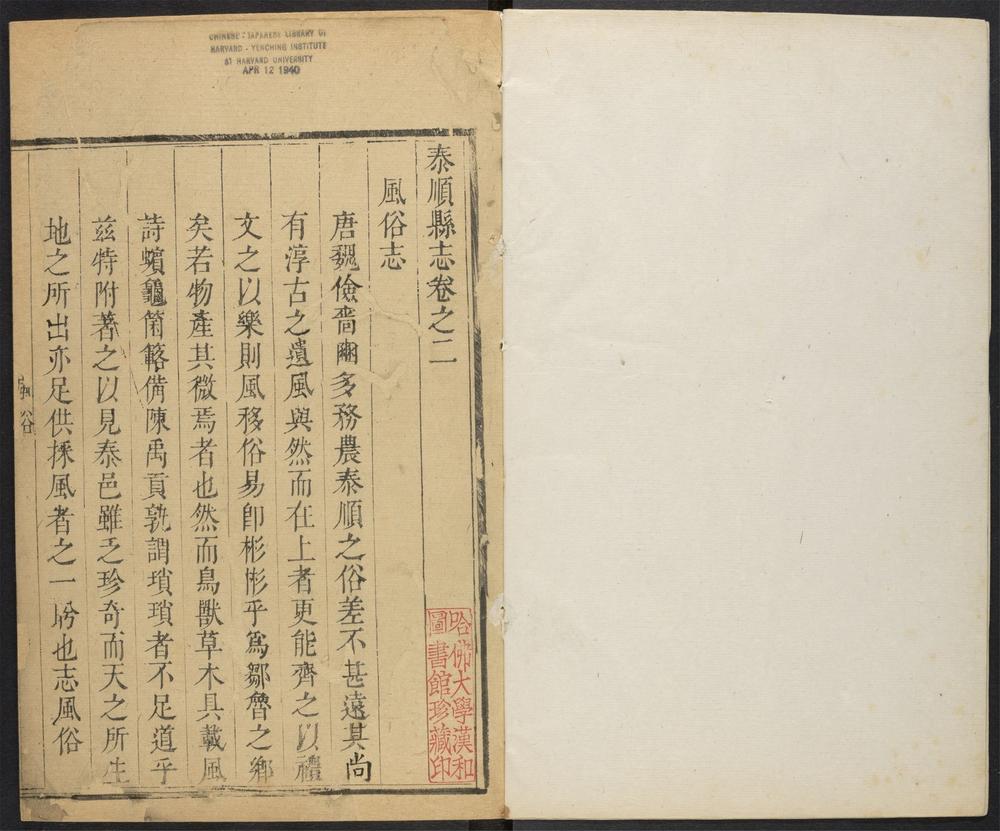 CHINESE - JAPANESE LIBRARY OF
HARVARD - YENCHING INSTITUTE
AT HARVARD UNIVERSITY
APR 12 1940
泰順縣志卷之二
風俗志
唐魏儉嗇豳多務農泰順之俗差不甚遠其尚
有淳古之遺風與然而在上者更能齊之以禮
文之以樂則風移俗易即彬彬乎爲鄒魯之鄉
矣若物產其微焉者也然而鳥獸草木具載風
詩蠙龜箘簵備陳禹貢孰謂瑣瑣者不足道乎
茲特附著之以見泰邑雖乏珍奇而天之所生
地之所出亦足供採風者之一盻也志風俗
風俗
哈佛大學漢和
圖書館珍藏印